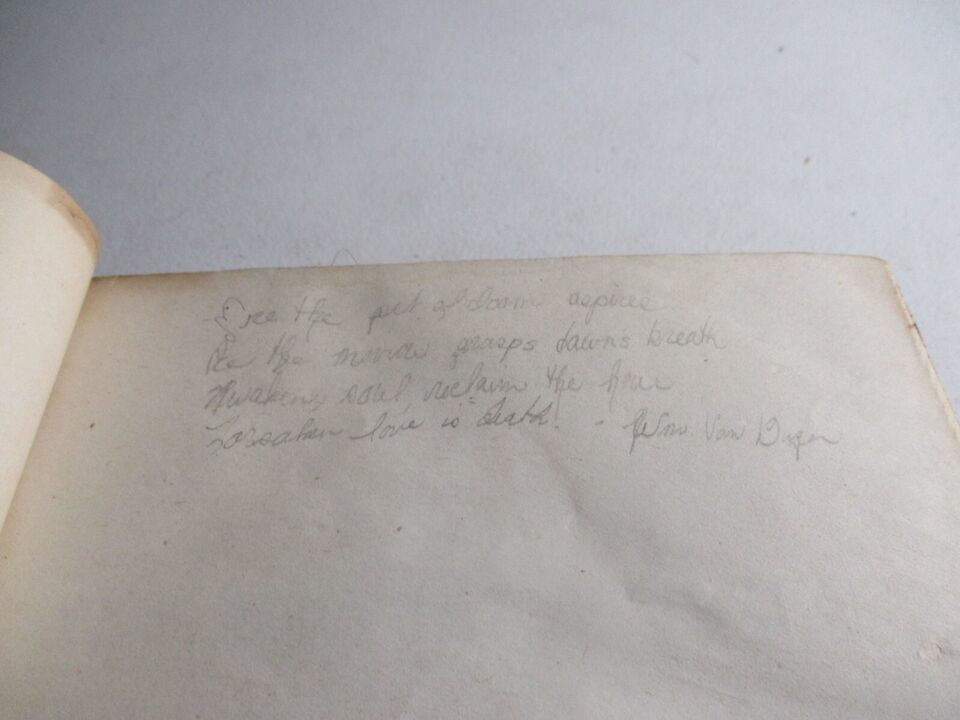 Ere the pit of doom aspires
Ere the mind grasps dawns breath
Awaking soul reclaim the hour
Forsaken love is death! - Wm. Van